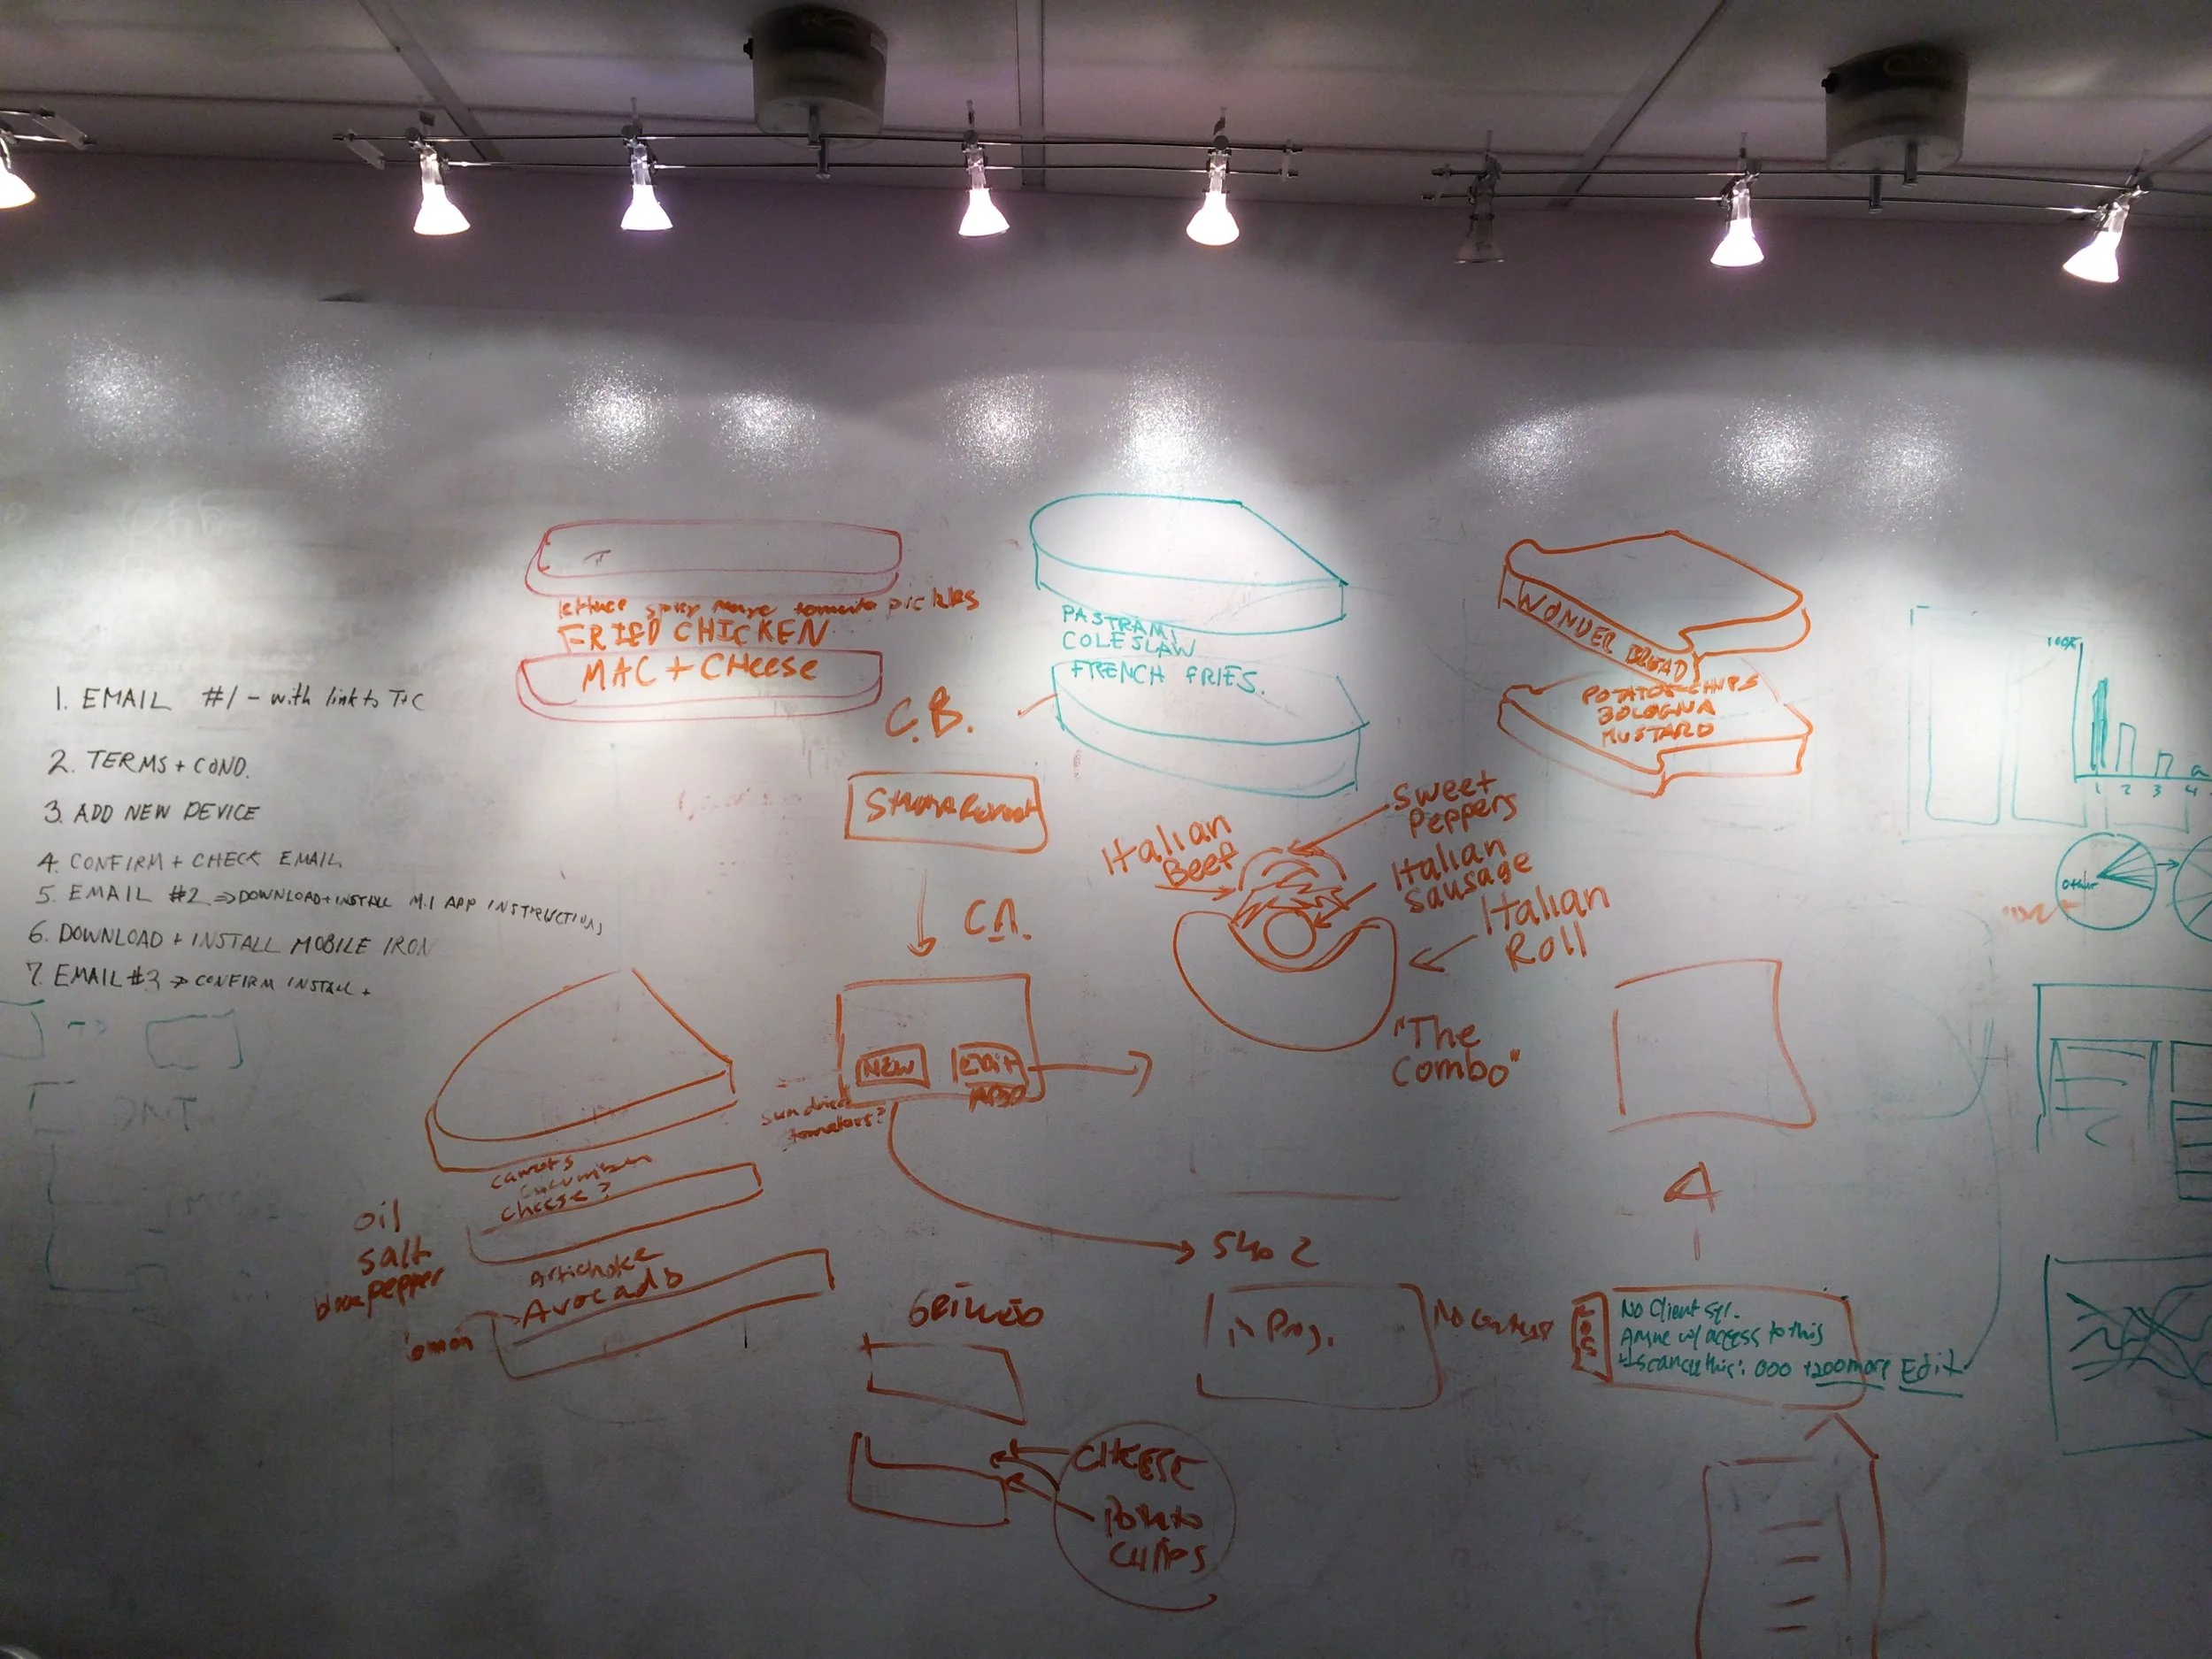 1. EMAIL #1 - with link to T+C
2. TERMS + COND.
3. ADD NEW DEVICE
4. CONFIRM + CHECK EMAIL
5. EMAIL #2 => DOWNLOAD + INSTALL M.I APP INSTRUCTIONS
6. DOWNLOAD + INSTALL MOBILE IRON
7. EMAIL #3 => CONFIRM INSTALL +
lettuce spicy mayo tomato pickles
FRIED CHICKEN
MAC + CHeese
PASTRAMI
COLESLAW
FRENCH FRIES.
WONDER BREAD
POTATO CHIPS
BOLOGNA
MUSTARD
C.B.
Italian
Beef
Sweet
Peppers
Italian
Sausage
Italian
Roll
"The
Combo"
C.A.
NEW
EDIT
APP
sundried
tomatoes?
carrots
cucumber
cheese?
oil
salt
pepper
Artichoke
Avocado
lemon
in Prog.
4
No Client
w/ access to this
this: 000 +200 more Edit
CHEESE
Potato
CHIPS
100%
1 2 3 4
other